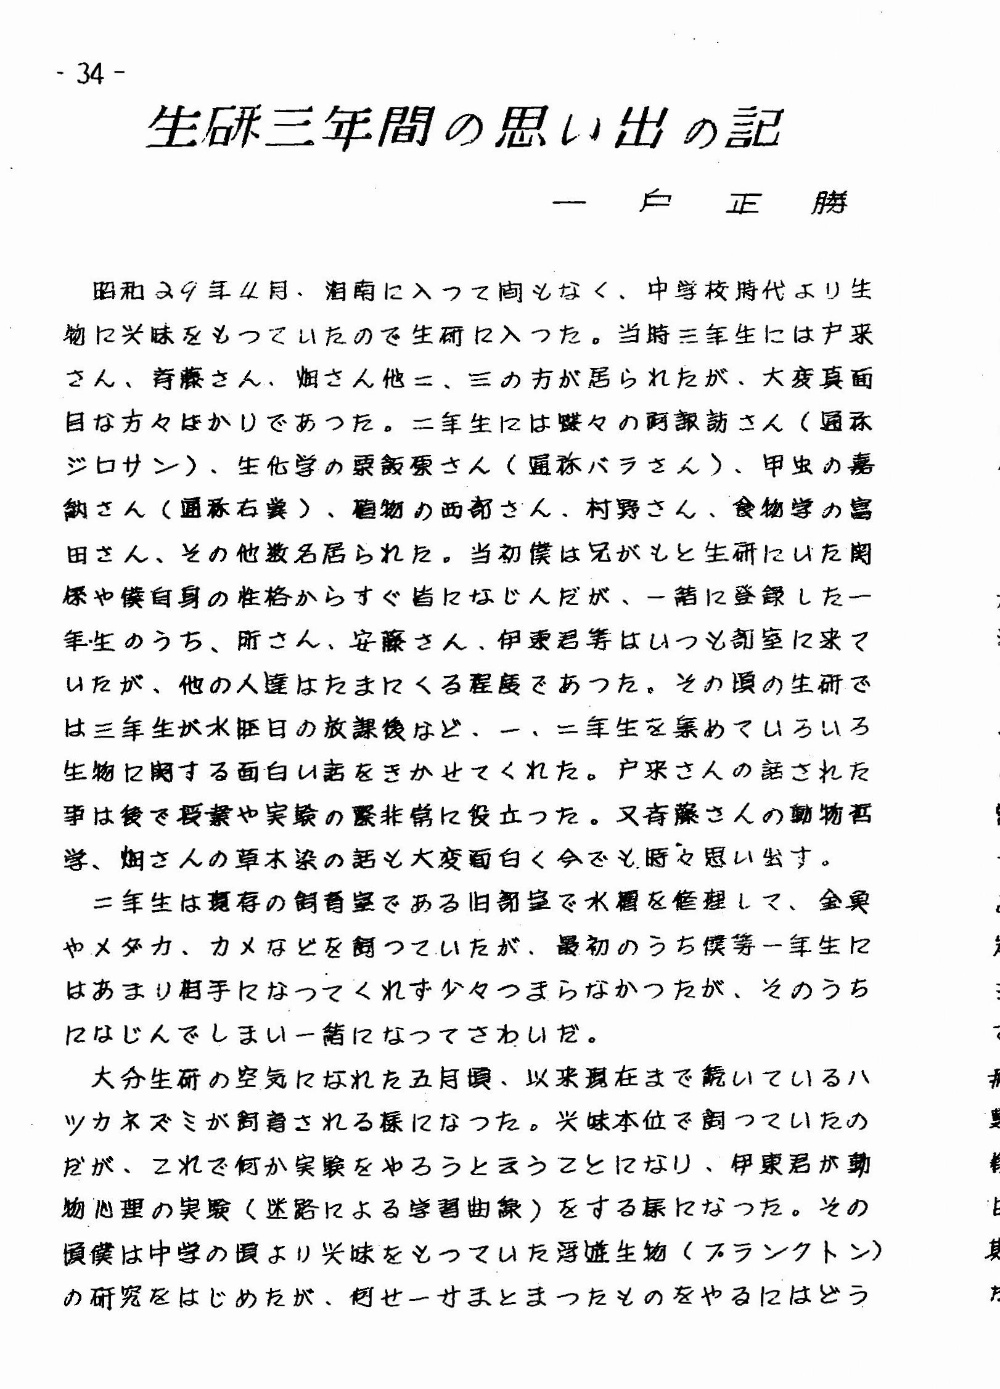 - 34 -
生研三年間の思い出の記
一戸正勝
昭和29年4月、湘南に入つて間もなく、中学校時代より生
物に興味をもつていたので生研に入つた。当時三年生には戸来
さん、斉藤さん、畑さん他二、三の方が居られたが、大変真面
目な方々ばかりであつた。二年生には蝶々の阿諏訪さん（通称
ジロサン）、生化学の栗飯原さん（通称バラさん）、甲虫の嘉
納さん（通称右巽）、植物の西部さん、村野さん、食物学の富
田さん、その他数名居られた。当初僕は兄がもと生研にいた関
係や僕自身の性格からすぐ皆になじんだが、一緒に登録した一
年生のうち、所さん、安藤さん、伊東君等はいつも部室に来て
いたが、他の人達はたまにくる程度であつた。その頃の生研で
は三年生が水旺日の放課後など、一、二年生を集めていろいろ
生物に関する面白い話をきかせてくれた。戸来さんの話された
事は後で授業や実験の際非常に役立つた。又斉藤さんの動物哲
学、畑さんの草木染の話も大変面白く今でも時々思い出す。
二年生は現存の飼育室である旧部室で水槽を修理して、金魚
やメダカ、カメなどを飼つていたが、最初のうち僕等一年生に
はあまり相手になってくれず少々つまらなかつたが、そのうち
になじんでしまい一緒になってさわいだ。
大分生研の空気になれた五月頃、以来現在まで続いているハ
ツカネズミが飼育される様になつた。興味本位で飼つていたの
だが、これで何か実験をやろうと云うことになり、伊東君が動
物心理の実験（迷路による学習曲線）をする様になつた。その
頃僕は中学の頃より興味をもつていた浮遊生物（プランクトン）
の研究をはじめたが、何せ一せまとまつたものをやるにはどう